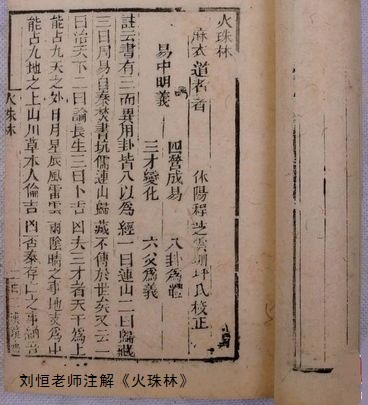 火珠林
麻衣道者著 休陽程芝雲珊坪氏校正
四營成易 八卦為體
易中明義
三才變化 六爻為義
註云書有三而異用卦皆八以為經一曰連山二曰歸藏
三曰周易自秦焚書坑儒連山歸藏不傳於世矣又云一
曰治天下二曰論長生三曰卜吉凶夫三才者天為上
能占九天之外日月星辰風雷雲雨陰晴之事地支為中
能占九地之上山川草木人倫吉凶否泰存亡之事納音
火珠林
刘恒老师注解《火珠林》